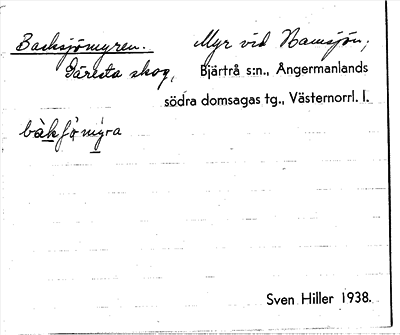 Backsjömyren. Myr vid Hamsjön,
Säresta skog, Bjärtrå s:n., Ångermanlands
södra domsagas tg., Västernorrl. l.
bàkʃömýra
Sven Hiller 1938.